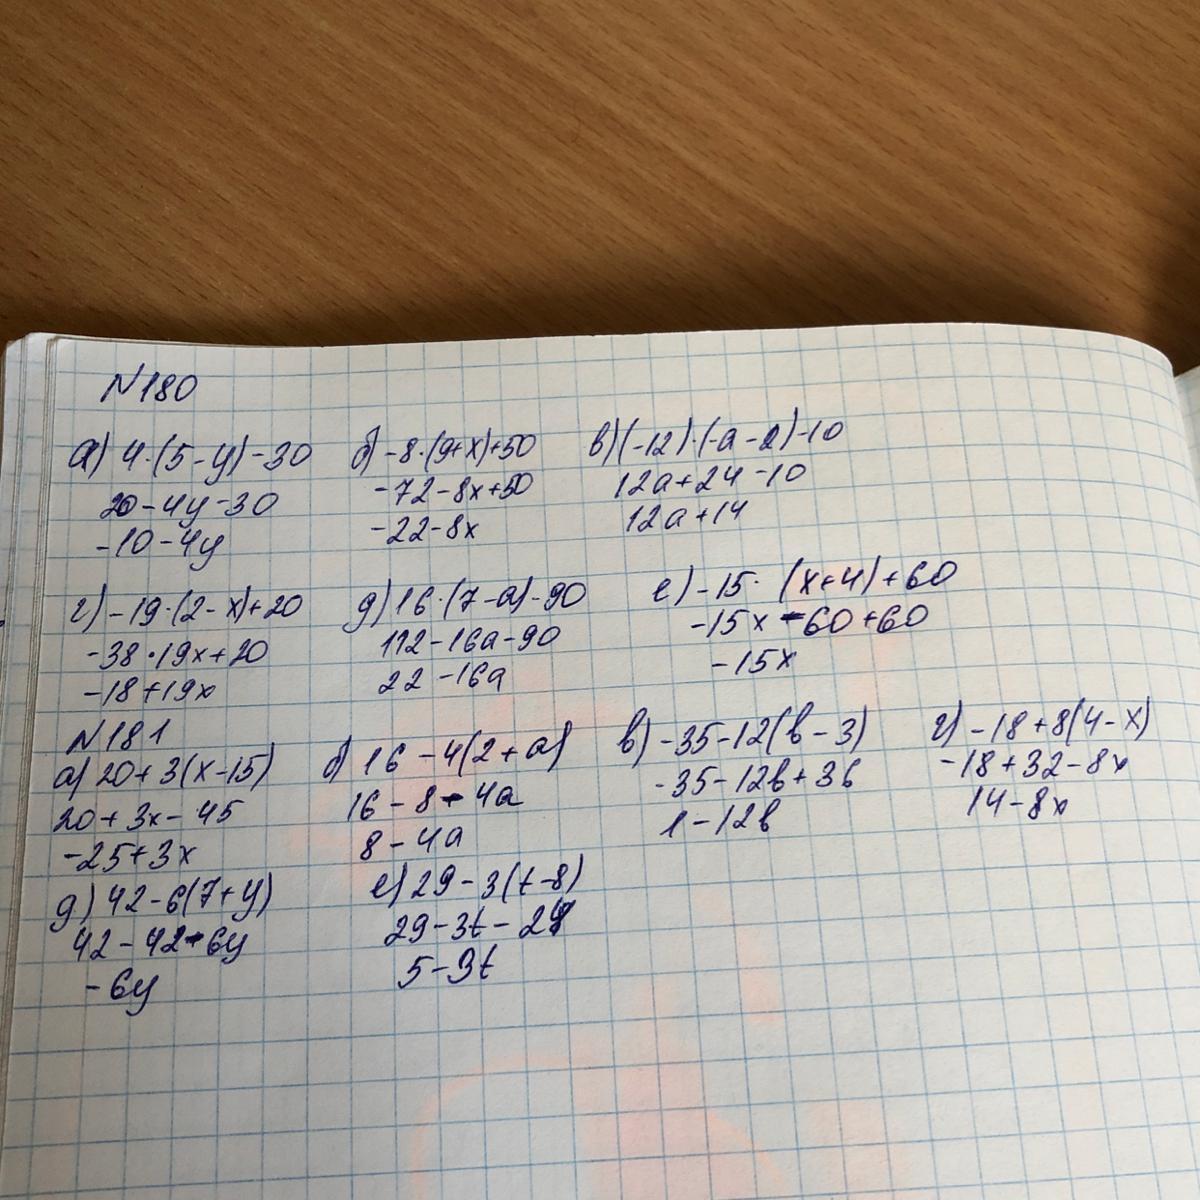 N180
а) 4·(5-y)-30 б) -8·(9+x)+50 в) (-12)·(-a-2)-10
20-4y-30 -72-8x+50 12a+24-10
-10-4y -22-8x 12a+14
г) -19·(2-x)+20 д) 16·(7-a)-90 е) -15·(x+4)+60
-38·19x+20 112-16a-90 -15x-60+60
-18+19x 22-16a -15x
N181
а) 20+3(x-15) б) 16-4(2+a) в) -35-12(b-3) г) -18+8(4-x)
20+3x-45 16-8-4a -35-12b+36 -18+32-8x
-25+3x 8-4a 1-12b 14-8x
д) 42-6(7+y) е) 29-3(t-8)
42-42-6y 29-3t-24
-6y 5-3t